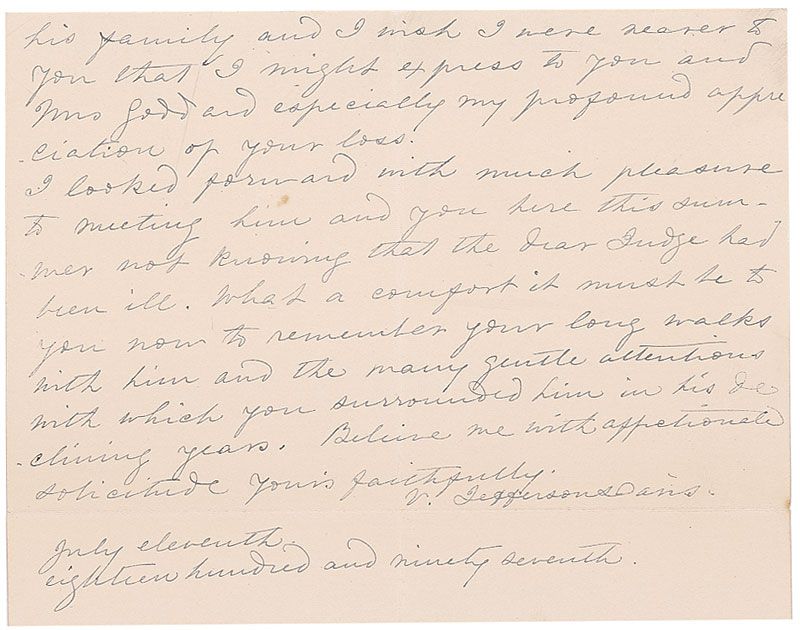 his family and I wish I were nearer to
you that I might express to you and
Mrs Goddard especially my profound appre
-ciation of your loss.
I looked forward with much pleasure
to meeting him and you here this sum-
-mer not knowing that the dear Judge had
been ill. What a comfort it must be to
you now to remember your long walks
with him and the many gentle attentions
with which you surrounded him in his de
-clining years. Believe me with affectionate
solicitude yours faithfully.
V. Jefferson Davis.
July eleventh.
eighteen hundred and ninety seventh.